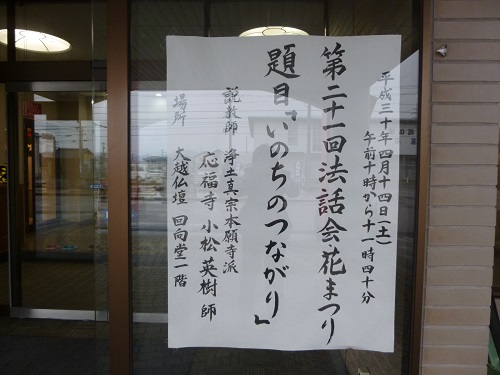 平成三十年四月十四日（土）
午前十時から十一時四十分
第二十一回法話会花まつり
題目「いのちのつながり」
説教師 浄土真宗本願寺派
応福寺 小松英樹師
場所 大越仏壇 回向堂一階